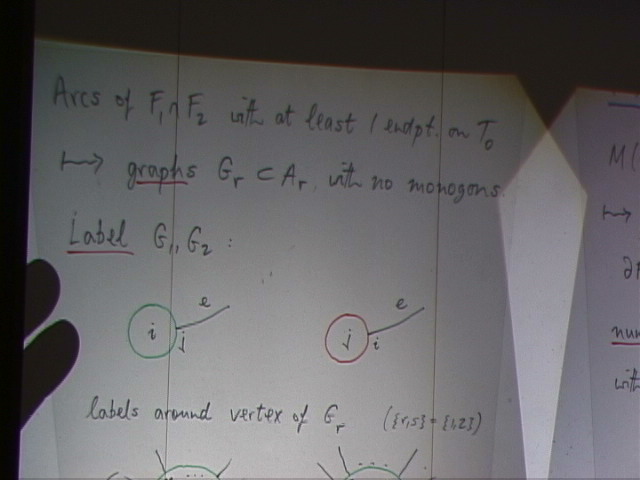 Arcs of F₁∩F₂ with at least 1 endpt. on T₀
↦ graphs Gᵣ ⊂ Aᵣ, with no monogons.
Label G₁, G₂ :
i j e
j i e
labels around vertex of Gᵣ ({r,s} = {1,2})
M(
↦
∂
num
with